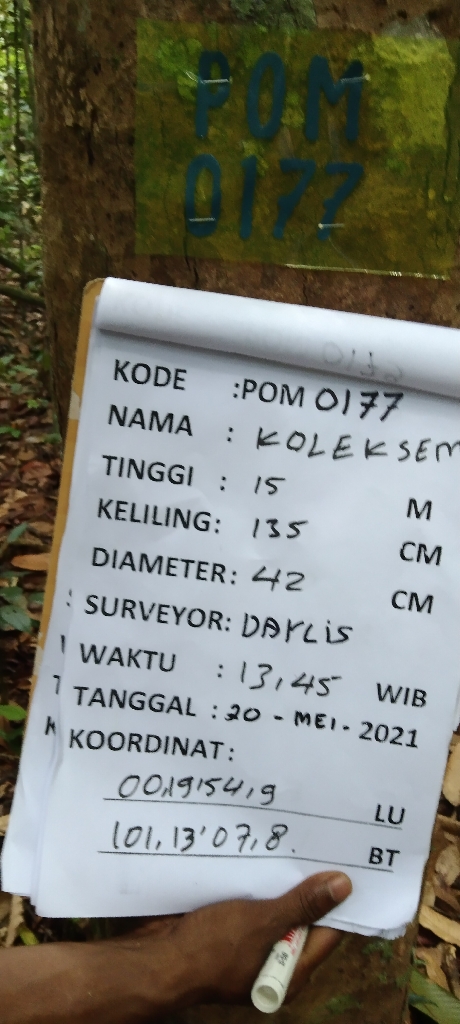 POM
0177
0172
KODE :POM 0177
NAMA : KOLEKSEM
TINGGI : 15 M
KELILING: 135 CM
DIAMETER: 42 CM
SURVEYOR: DAYLIS
WAKTU : 13,45 WIB
TANGGAL : 20 - MEI - 2021
KOORDINAT:
00,19'54,9 LU
101,13'07,8. BT